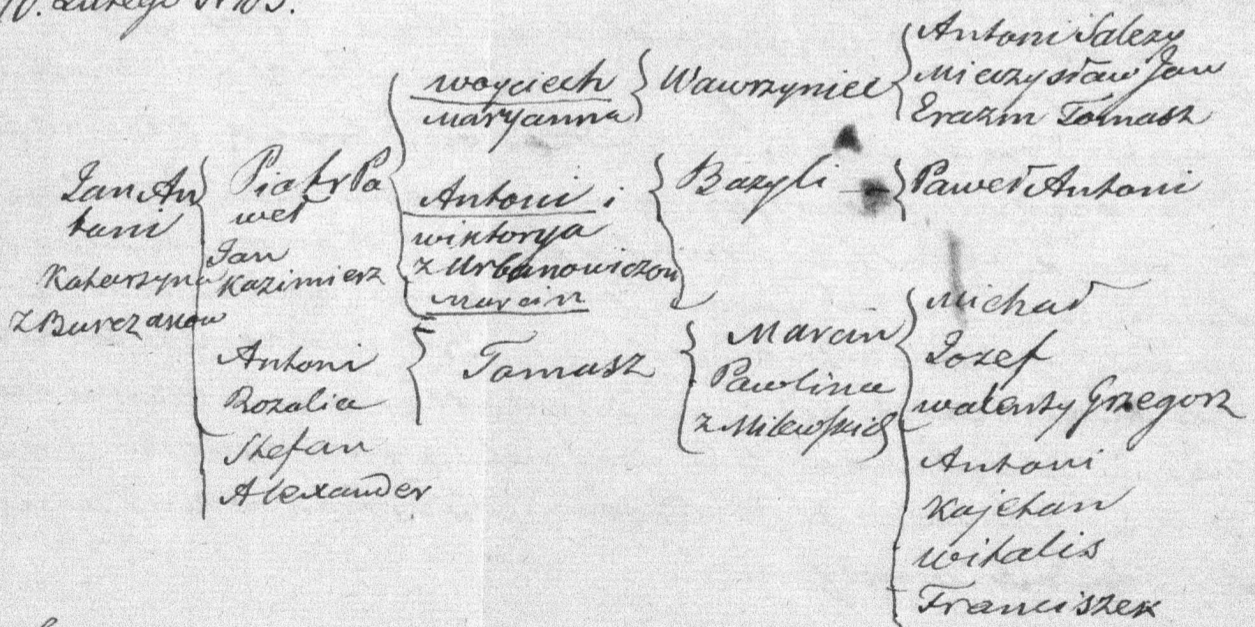 Lutego
Jan An
toni
Katarzyna
z Burczakow
Piotr Pa
weł
Jan
Kazimierz
Antoni
Rozalia
Stefan
Alexander
Woyciech
Maryanna
Antoni i
Wiktorya
z Urbanowiczow
Marcin
Tomasz
Wawrzyniec
Bazyli
Marcin
Pawlina
z Milewskich
Antoni Salezy
Mieczysław Jan
Erazm Tomasz
Paweł Antoni
Michał
Jozef
Walenty Grzegorz
Antoni
Kajetan
Witalis
Franciszek